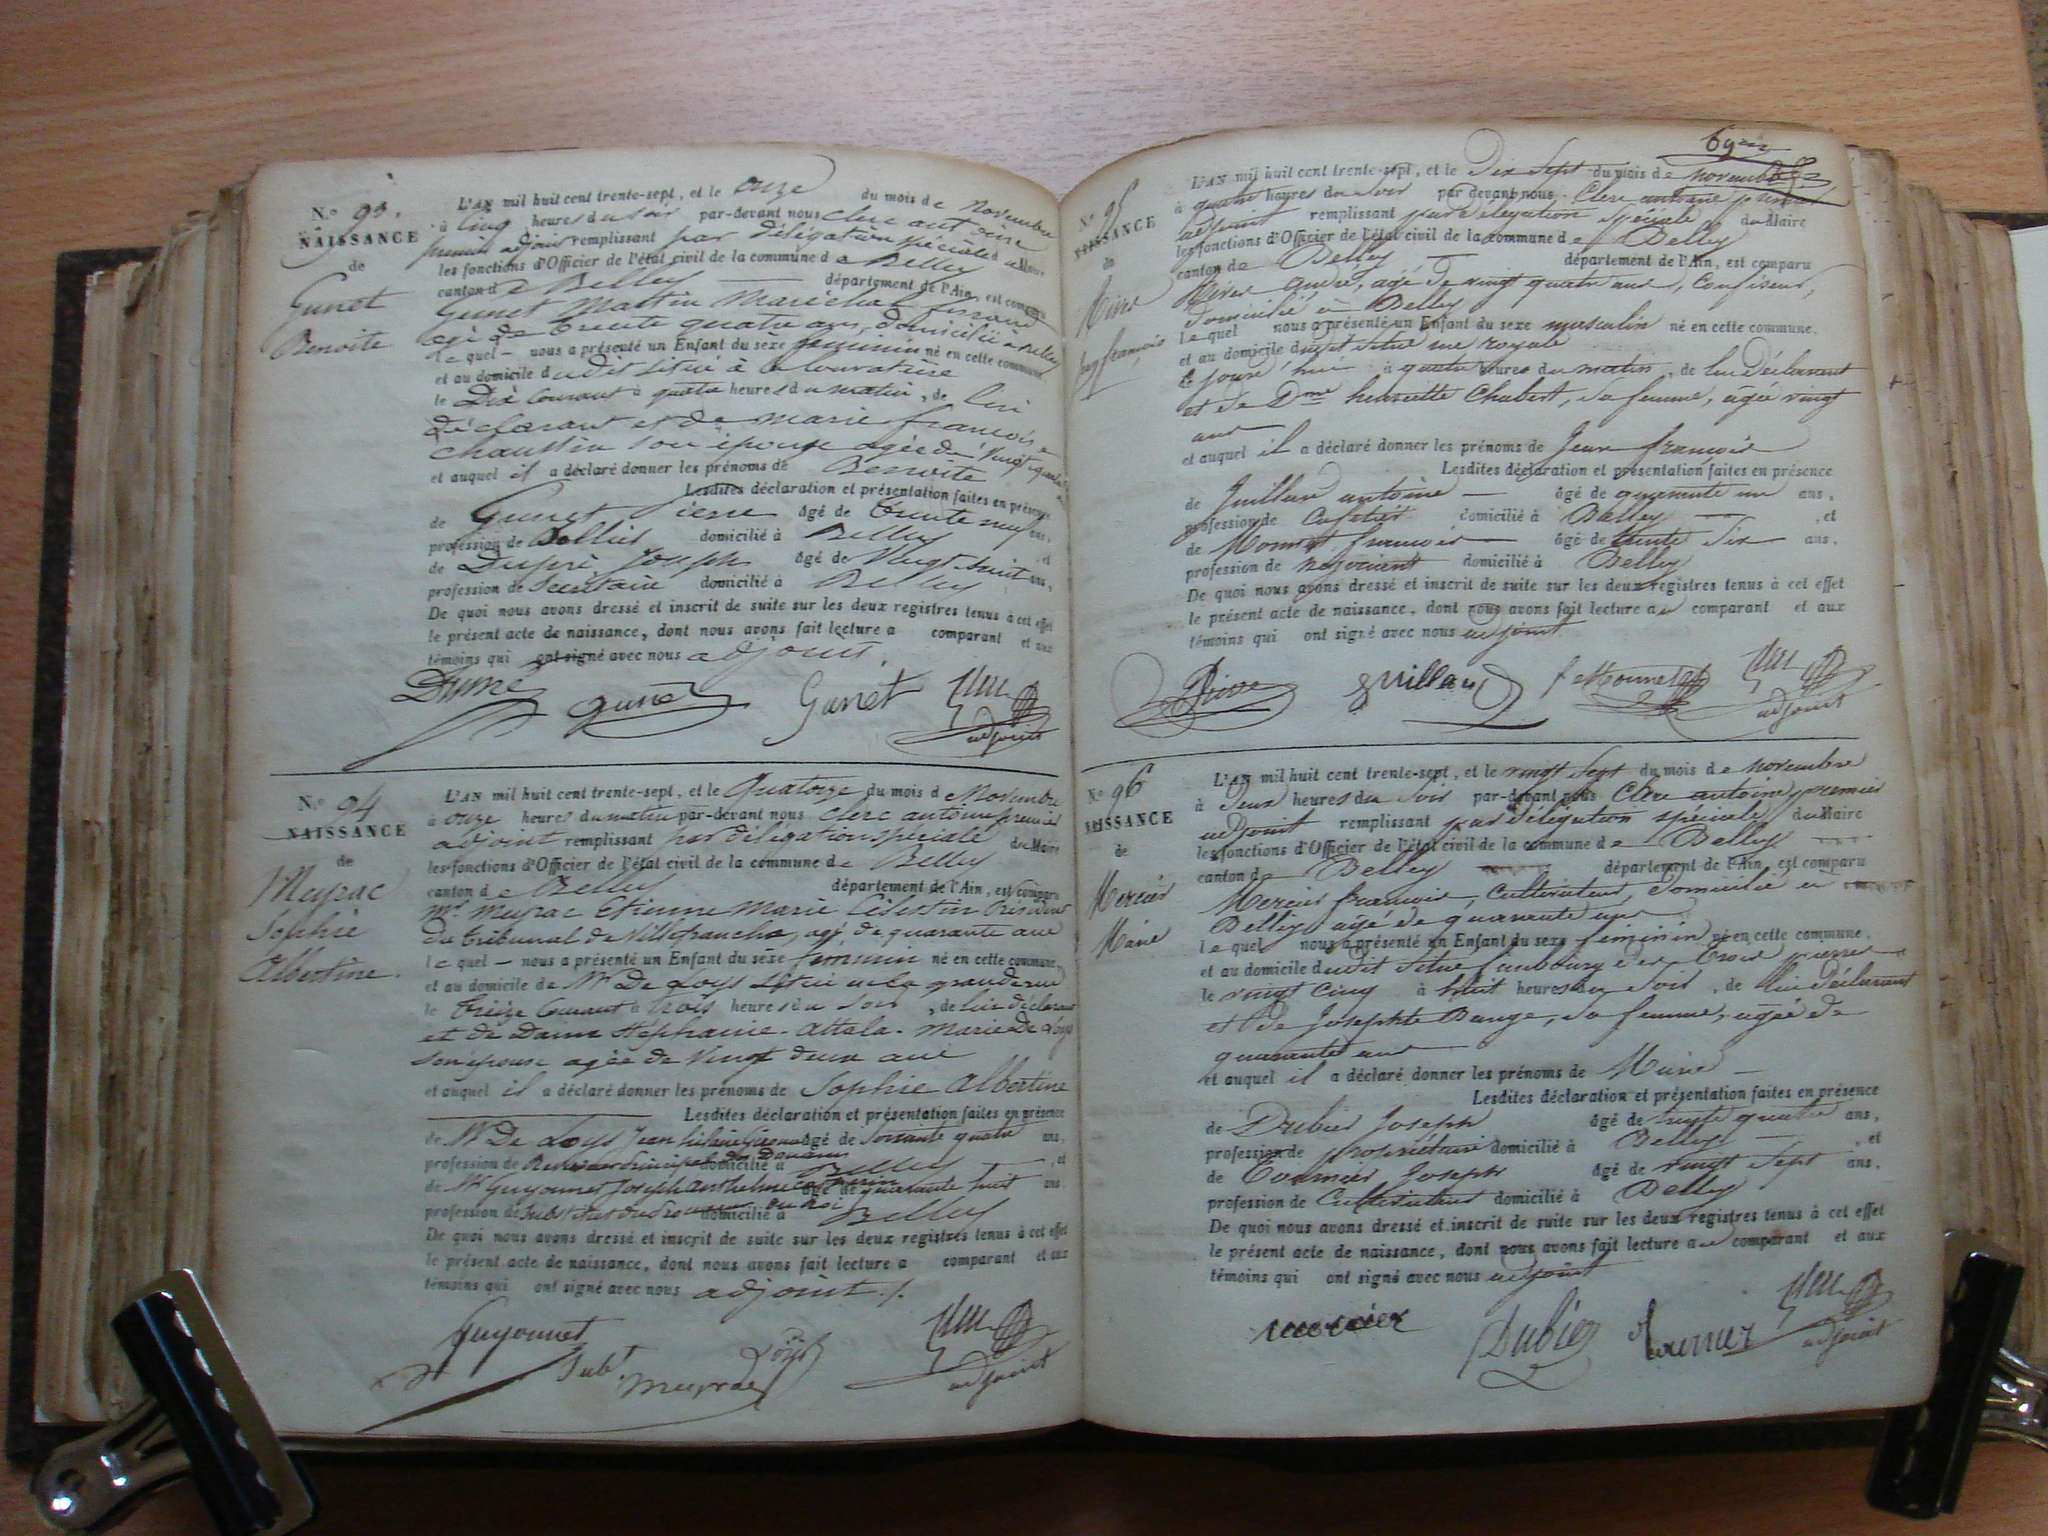 N.o 93.
NAISSANCE
de
Gunet
Benoite
L'AN mil huit cent trente-sept, et le onze du mois de novembre
à Cinq heures du soir par-devant nous Clerc antoine
premier adjoint remplissant par délégation spéciale du Maire
les fonctions d'Officier de l'état civil de la commune de Belley
canton de Belley département de l'Ain, est comparu
Gunet Martin Maréchal ferrand
agé de trente quatre ans, domicilié à Belley
lequel nous a présenté un Enfant du sexe féminin né en cette commune
et au domicile dudit situé à
le Dix Courant à quatre heures du matin, de lui
Déclarant et de marie françoise
chaussin son épouse agée de vingt quatre
et auquel il a déclaré donner les prénoms de Benoite
Lesdites déclaration et présentation faites en présence
de Gunet Pierre âgé de trente neuf ans,
profession de Sellier domicilié à Belley, et
de Dupré Joseph âgé de vingt huit ans,
profession de Secrétaire domicilié à Belley
De quoi nous avons dressé et inscrit de suite sur les deux registres tenus à cet effet
le présent acte de naissance, dont nous avons fait lecture a comparant et aux
témoins qui ont signé avec nous adjoint.
Gunet
adjoint
N.o 94
NAISSANCE
de
Meyrac
Sophie
Albertine.
L'AN mil huit cent trente-sept, et le Quatorze du mois de Novembre
à onze heures du matin par-devant nous Clerc antoine premier
adjoint remplissant par délégation spéciale du Maire
les fonctions d'Officier de l'état civil de la commune de Belley
canton de Belley département de l'Ain, est comparu
Mr. Meyrac Etienne Marie Célestin Président
du tribunal de Villefranche, agé de quarante ans
lequel nous a présenté un Enfant du sexe féminin né en cette commune,
et au domicile de Mr De Loys situé à la grande rue
le treize Courant à trois heures du soir, de lui déclarant
et de Dame Stephanie - attala - Marie De Loys
son épouse agée de vingt deux ans
et auquel il a déclaré donner les prénoms de Sophie Albertine
Lesdites déclaration et présentation faites en présence
de Mr De Loys Jean âgé de soixante quatre ans,
profession de Receveur Principal des Douanes domicilié à Belley, et
de Mr Guyonnet Joseph Anthelme âgé de quarante huit ans
profession de Substitut du procureur du Roi domicilié à Belley
De quoi nous avons dressé et inscrit de suite sur les deux registres tenus à cet effet
le présent acte de naissance, dont nous avons fait lecture a comparant et aux
témoins qui ont signé avec nous adjoint ./.
Guyonnet
Subt.
Meyrac
Loys
adjoint
N.o 95
NAISSANCE
de
françois
L'AN mil huit cent trente-sept, et le Dix Sept du mois de novembre
à quatre heures du soir par devant nous Clerc antoine premier
adjoint remplissant par délégation spéciale du Maire
les fonctions d'Officier de l'état civil de la commune de Belley
canton de Belley département de l'Ain, est comparu
André, agé de vingt quatre ans, Confiseur,
domicilié à Belley
lequel nous a présenté un Enfant du sexe masculin né en cette commune.
et au domicile dudit situé rue royale
le jourd'hui à quatre heures du matin, de lui Déclarant
et de Dme henriette Chabert, sa femme, agée vingt
ans
et auquel il a déclaré donner les prénoms de Jean françois
Lesdites déclaration et présentation faites en présence
de Juilland antoine âgé de quarante un ans,
profession de Cafetier domicilié à Belley, et
de Monnet françois âgé de trente Six ans,
profession de negociant domicilié à Belley
De quoi nous avons dressé et inscrit de suite sur les deux registres tenus à cet effet
le présent acte de naissance, dont nous avons fait lecture au comparant et aux
témoins qui ont signé avec nous adjoint
adjoint
N.o 96
NAISSANCE
de
Mercier
Marie
L'AN mil huit cent trente-sept, et le vingt Sept du mois de novembre
à Deux heures du Soir par-devant nous Clerc antoine premier
adjoint remplissant par délégation spéciale du Maire
les fonctions d'Officier de l'état civil de la commune de Belley
canton de Belley département de l'Ain, est comparu
Mercier françois, Cultivateur, Domicilié en
Belley agé de quarante ans
lequel nous a présenté un Enfant du sexe féminin né en cette commune.
et au domicile dudit situé faubourg des trois pierres
le vingt Cinq à huit heures du Soir, de lui déclarant
et de Josephte Bange, sa femme, agée de
quarante ans
et auquel il a déclaré donner les prénoms de Marie
Lesdites déclaration et présentation faites en présence
de Dubier Joseph âgé de trente quatre ans,
profession de propriétaire domicilié à Belley, et
de Tournier Joseph âgé de vingt Sept ans,
profession de Cultivateur domicilié à Belley
De quoi nous avons dressé et inscrit de suite sur les deux registres tenus à cet effet
le présent acte de naissance, dont nous avons fait lecture au comparant et aux
témoins qui ont signé avec nous adjoint
mercier
Dubier
Tournier
adjoint